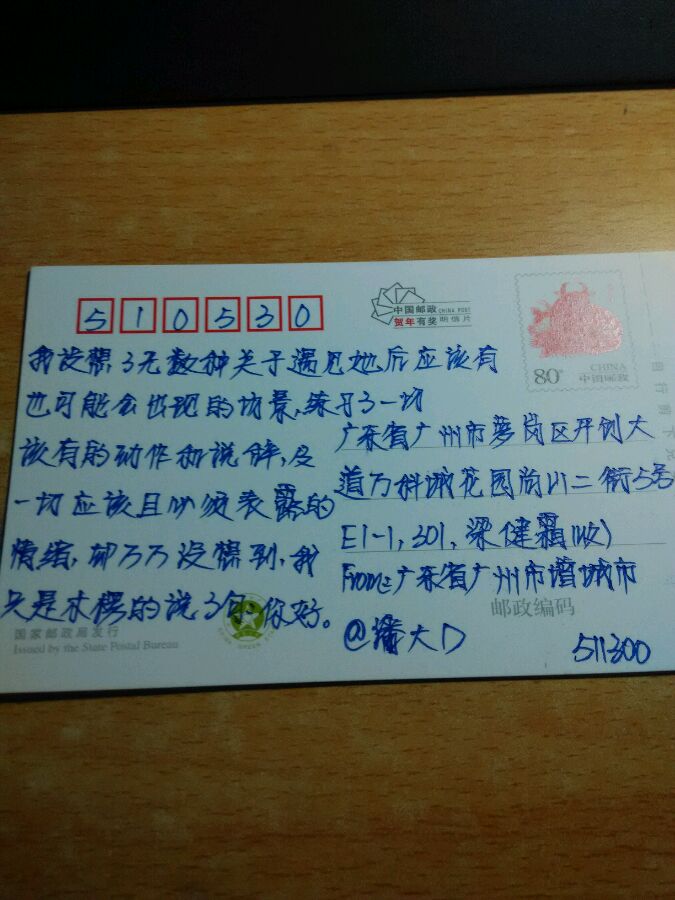 510530
中国邮政 CHINA POST
贺年有奖 明信片
80分
CHINA
中国邮政
我设想了无数种关于遇见她后应该有
也可能会出现的场景,练习了一切
该有的动作和说辞,及
一切应该且必须表露的
情绪,却万万没想到,我
只是木楞的说了句:你好。
广东省广州市萝岗区开创大
道万科城花园尚山二街5号
E1-1,301,梁健霜(收)
From:广东省广州市增城市
@潘大D
邮政编码
511300
国家邮政局发行
Issued by the State Postal Bureau